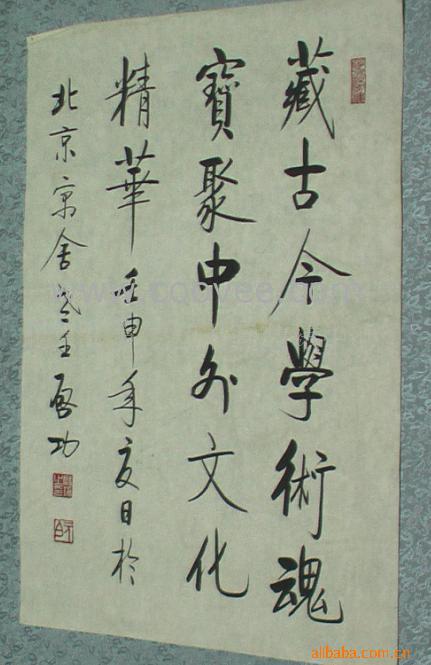 藏古今學術魂
寶聚中外文化
精華 申年夏日於
北京寓舍 啟功
alibaba.com.cn